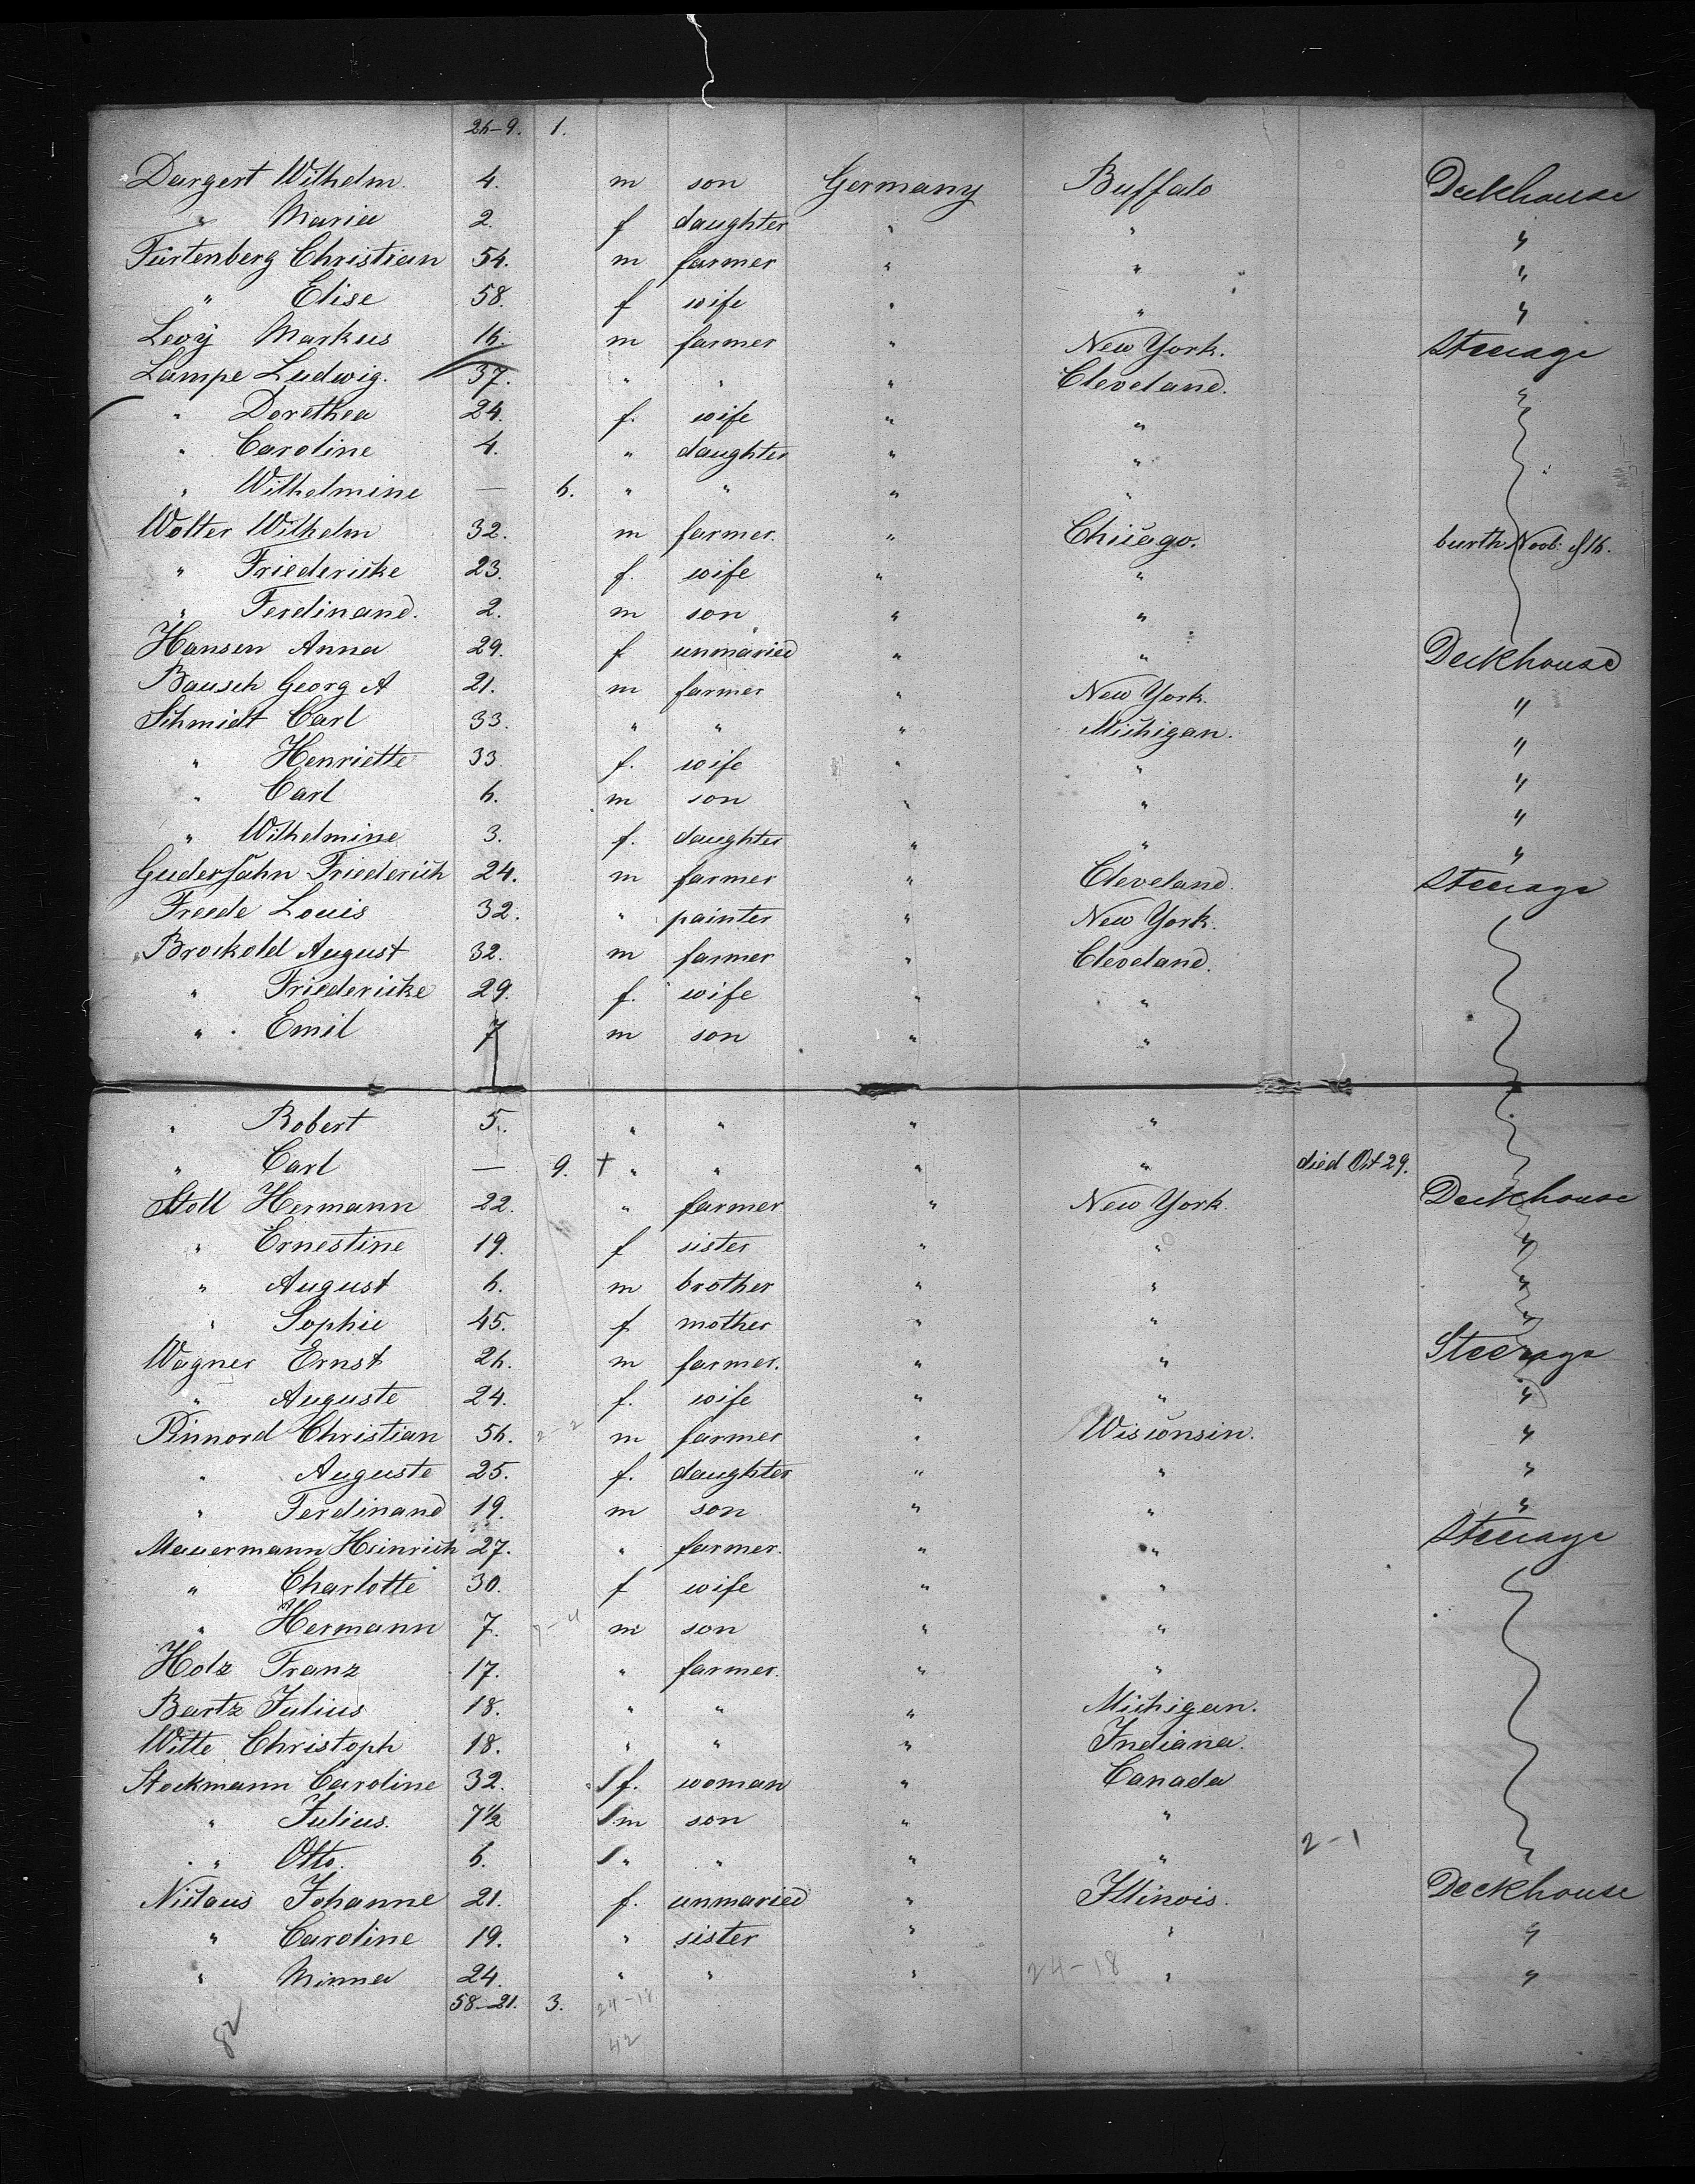 26-9. 1.
Dargert Wilhelm 4. m son Germany Buffalo Deckhouse
" Maria 2. f daughter " " "
Fürtenberg Christian 54. m farmer " " "
" Elise 58. f wife " " "
Levÿ Markus 16. m farmer " New York. Steerage
Lampe Ludwig. 37. " " " Cleveland. "
" Dorethea 24. f. wife " "
" Caroline 4. " daughter " "
" Wilhelmine — 6. " " " "
Wolter Wilhelm 32. m farmer. " Chicago. burth Nvb: of 16.
" Friedericke 23. f. wife " "
" Ferdinand. 2. m son " "
Hansen Anna 29. f unmaried " " Deckhouse
Bausch Georg A 21. m farmer " New York. "
Schmidt Carl 33. " " " Michigan. "
" Henriette 33 f. wife " " "
" Carl 6. m son " " "
" Wilhelmine 3. f. daughter " " "
Guderjahn Friederich 24. m farmer " Cleveland. Steerage
Freede Louis 32. " painter " New York.
Brockold August 32. m farmer " Cleveland.
" Friedericke 29. f. wife " "
" Emil 7 m son " "
" Robert 5. " " " "
" Carl — 9. † " " " " died Oct 29.
Stoll Hermann 22. " farmer " New York. Deckhouse
" Ernestine 19. f sister " " "
" August 6. m brother " " "
" Sophie 45. f mother " " "
Wagner Ernst 26. m farmer. " " Steerage
" Auguste 24. f. wife " " "
Pinnord Christian 56. 2-2 m farmer " Wisconsin. "
" Auguste 25. f. daughter " " "
" Ferdinand 19. m son " " "
Mauermann Heinrich 27. " farmer. " " Steerage
" Charlotte 30. f wife " "
" Hermann 7. m son " "
Holz Franz 17. " farmer. " "
Bartz Julius 18. " " " Michigan.
Witte Christoph 18. " " " Indiana.
Stockmann Caroline 32. f. woman " Canada
" Julius. 7½ m son " "
" Otto. 6. " " " " 2-1
Niclaus Johanne 21. f. unmaried " Illinois. Deckhouse
" Caroline 19. " sister " " "
" Minna 24. " " " 24-18 " "
58-21. 3. 24-18
82 42